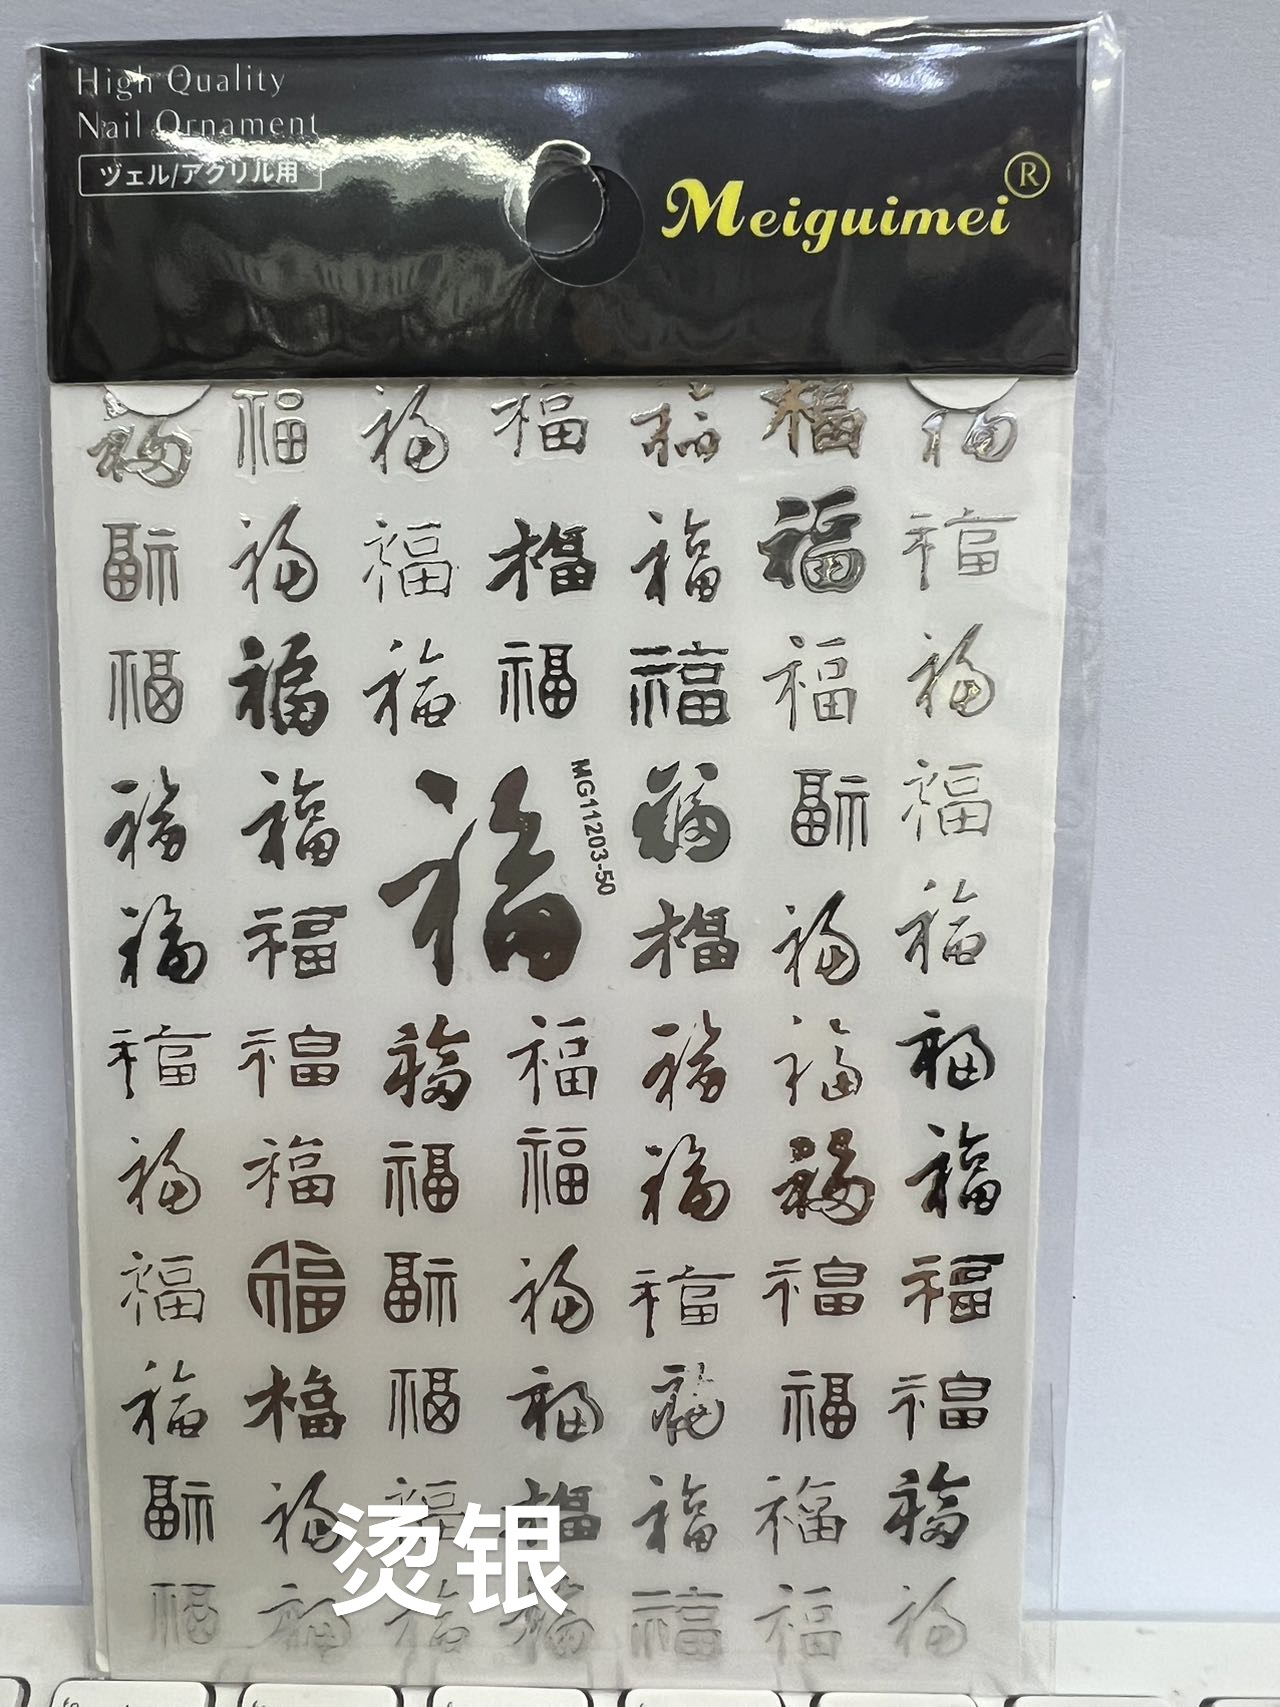 High Quality
Nail Ornament
ヅェル/アクリル用
Meiguimei®
福 福 福 福 福 福 福
福 福 福 福 福 福 福
福 福 福 福 福 福 福
福 福 福 福 福 福
MG11203-50
福 福 福 福 福
福 福 福 福 福 福 福
福 福 福 福 福 福 福
福 福 福 福 福 福 福
福 福 福 福 福 福 福
福 福 福 福 福 福 福
烫银
福 福 福 福 福 福 福